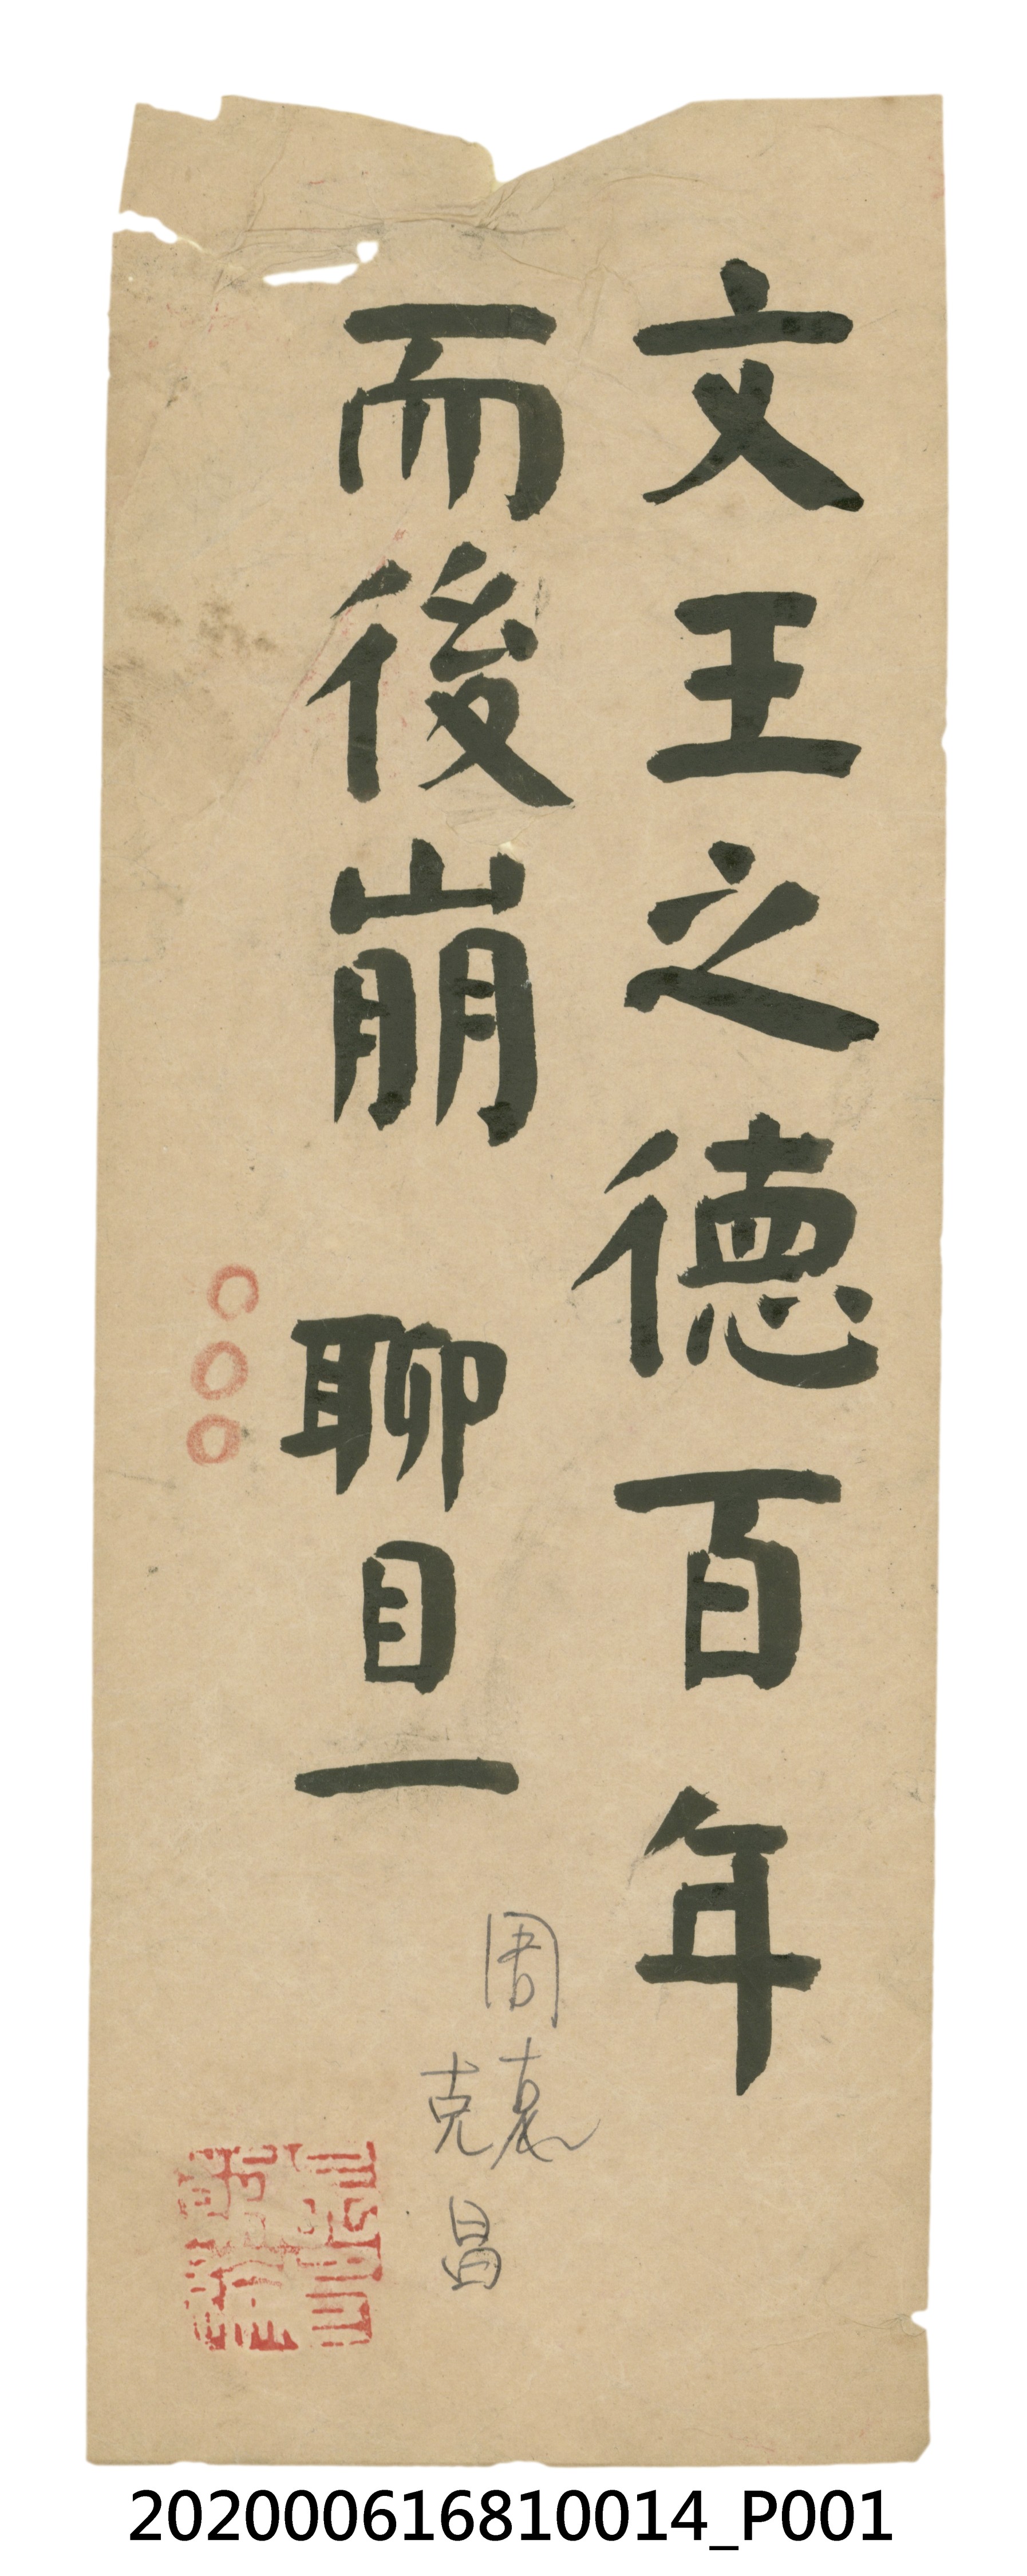 文王之德百年
而後崩 聊目一
周
克
昌
202000616810014_P001